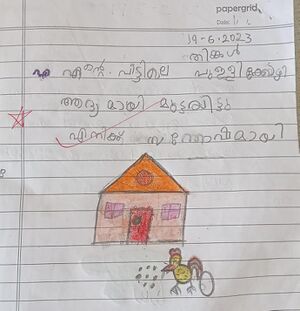 papergrid
Date: / /
19-6-2023
തിങ്കൾ
എന്റെ വീട്ടിലെ പുള്ളിക്കോഴി
ആദ്യമായി മുട്ടയിട്ടു
എനിക്ക് സന്തോഷമായി